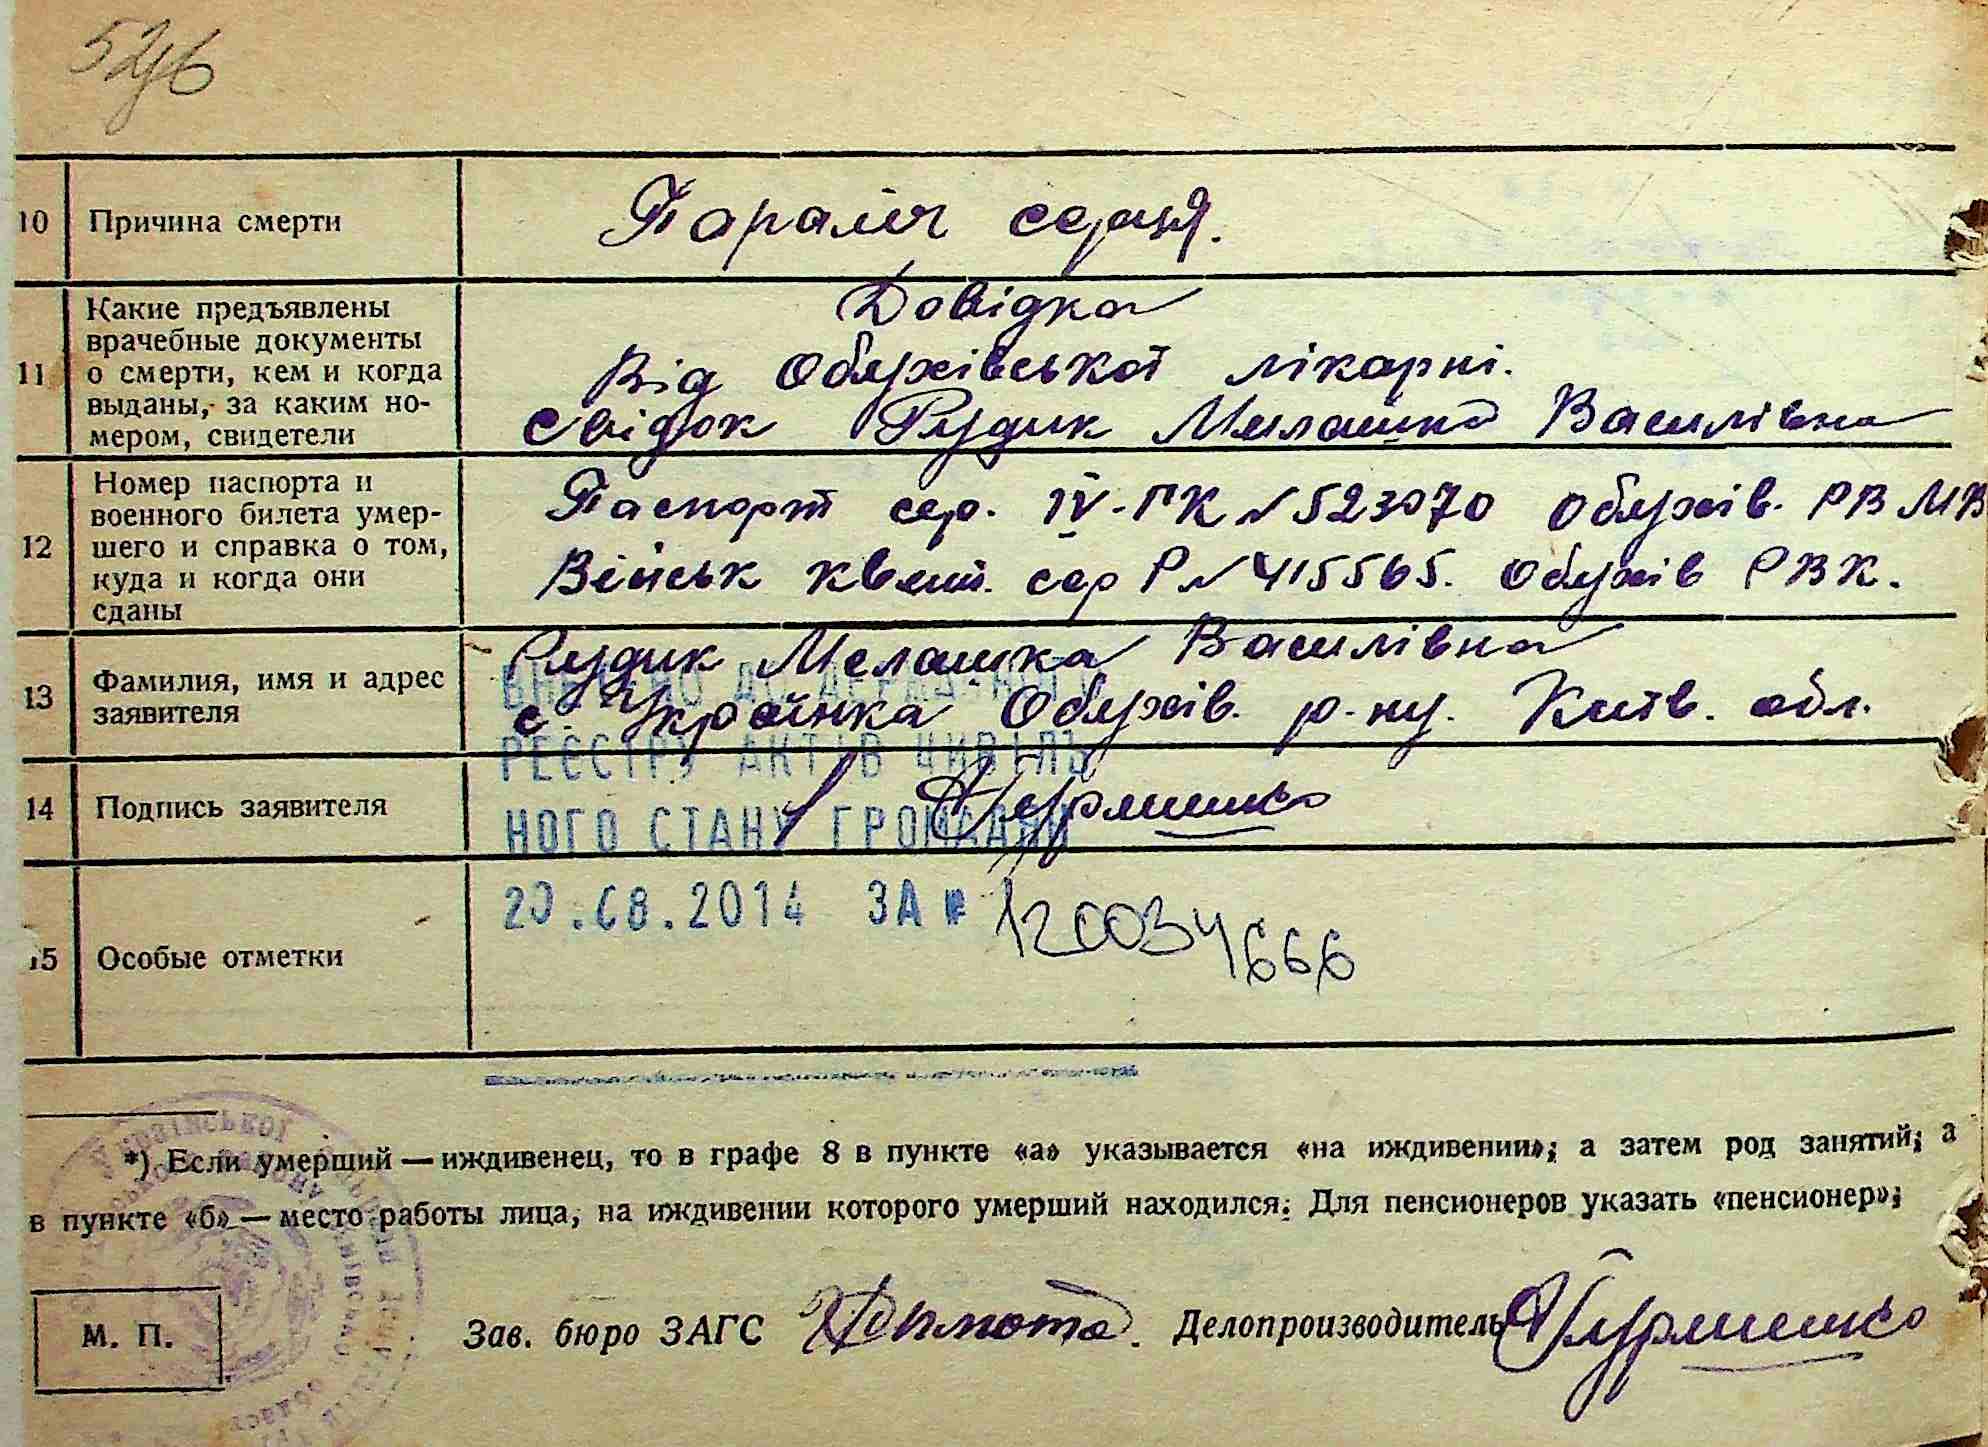 10 Причина смерти Параліч серця.
11 Какие предъявлены врачебные документы о смерти, кем и когда выданы, за каким но-мером, свидетели
Довідка
Від Обухівської лікарні.
Свідок Рудик Мелашка Василівна
12 Номер паспорта и военного билета умер-шего и справка о том, куда и когда они сданы
Паспорт сер. IV-ПК № 523070 Обухів. РВ МВ
Військ квит. сер Р № 415565. Обухів РВК.
13 Фамилия, имя и адрес заявителя
Рудик Мелашка Василівна
с. Українка Обухів. р-ну. Київ. обл.
ДО ДЕРЖАВНОГО
РЕЄСТРУ АКТІВ ЦИВІЛЬ
14 Подпись заявителя
НОГО СТАНУ ГРОМАДЯН
20.08.2014 ЗА № 120034666
15 Особые отметки
*) Если умерший — иждивенец, то в графе 8 в пункте «а» указывается «на иждивении»; а затем род занятий; а
в пункте «б» — место работы лица, на иждивении которого умерший находился: Для пенсионеров указать «пенсионер»;
М. П. Зав. бюро ЗАГС Делопроизводитель